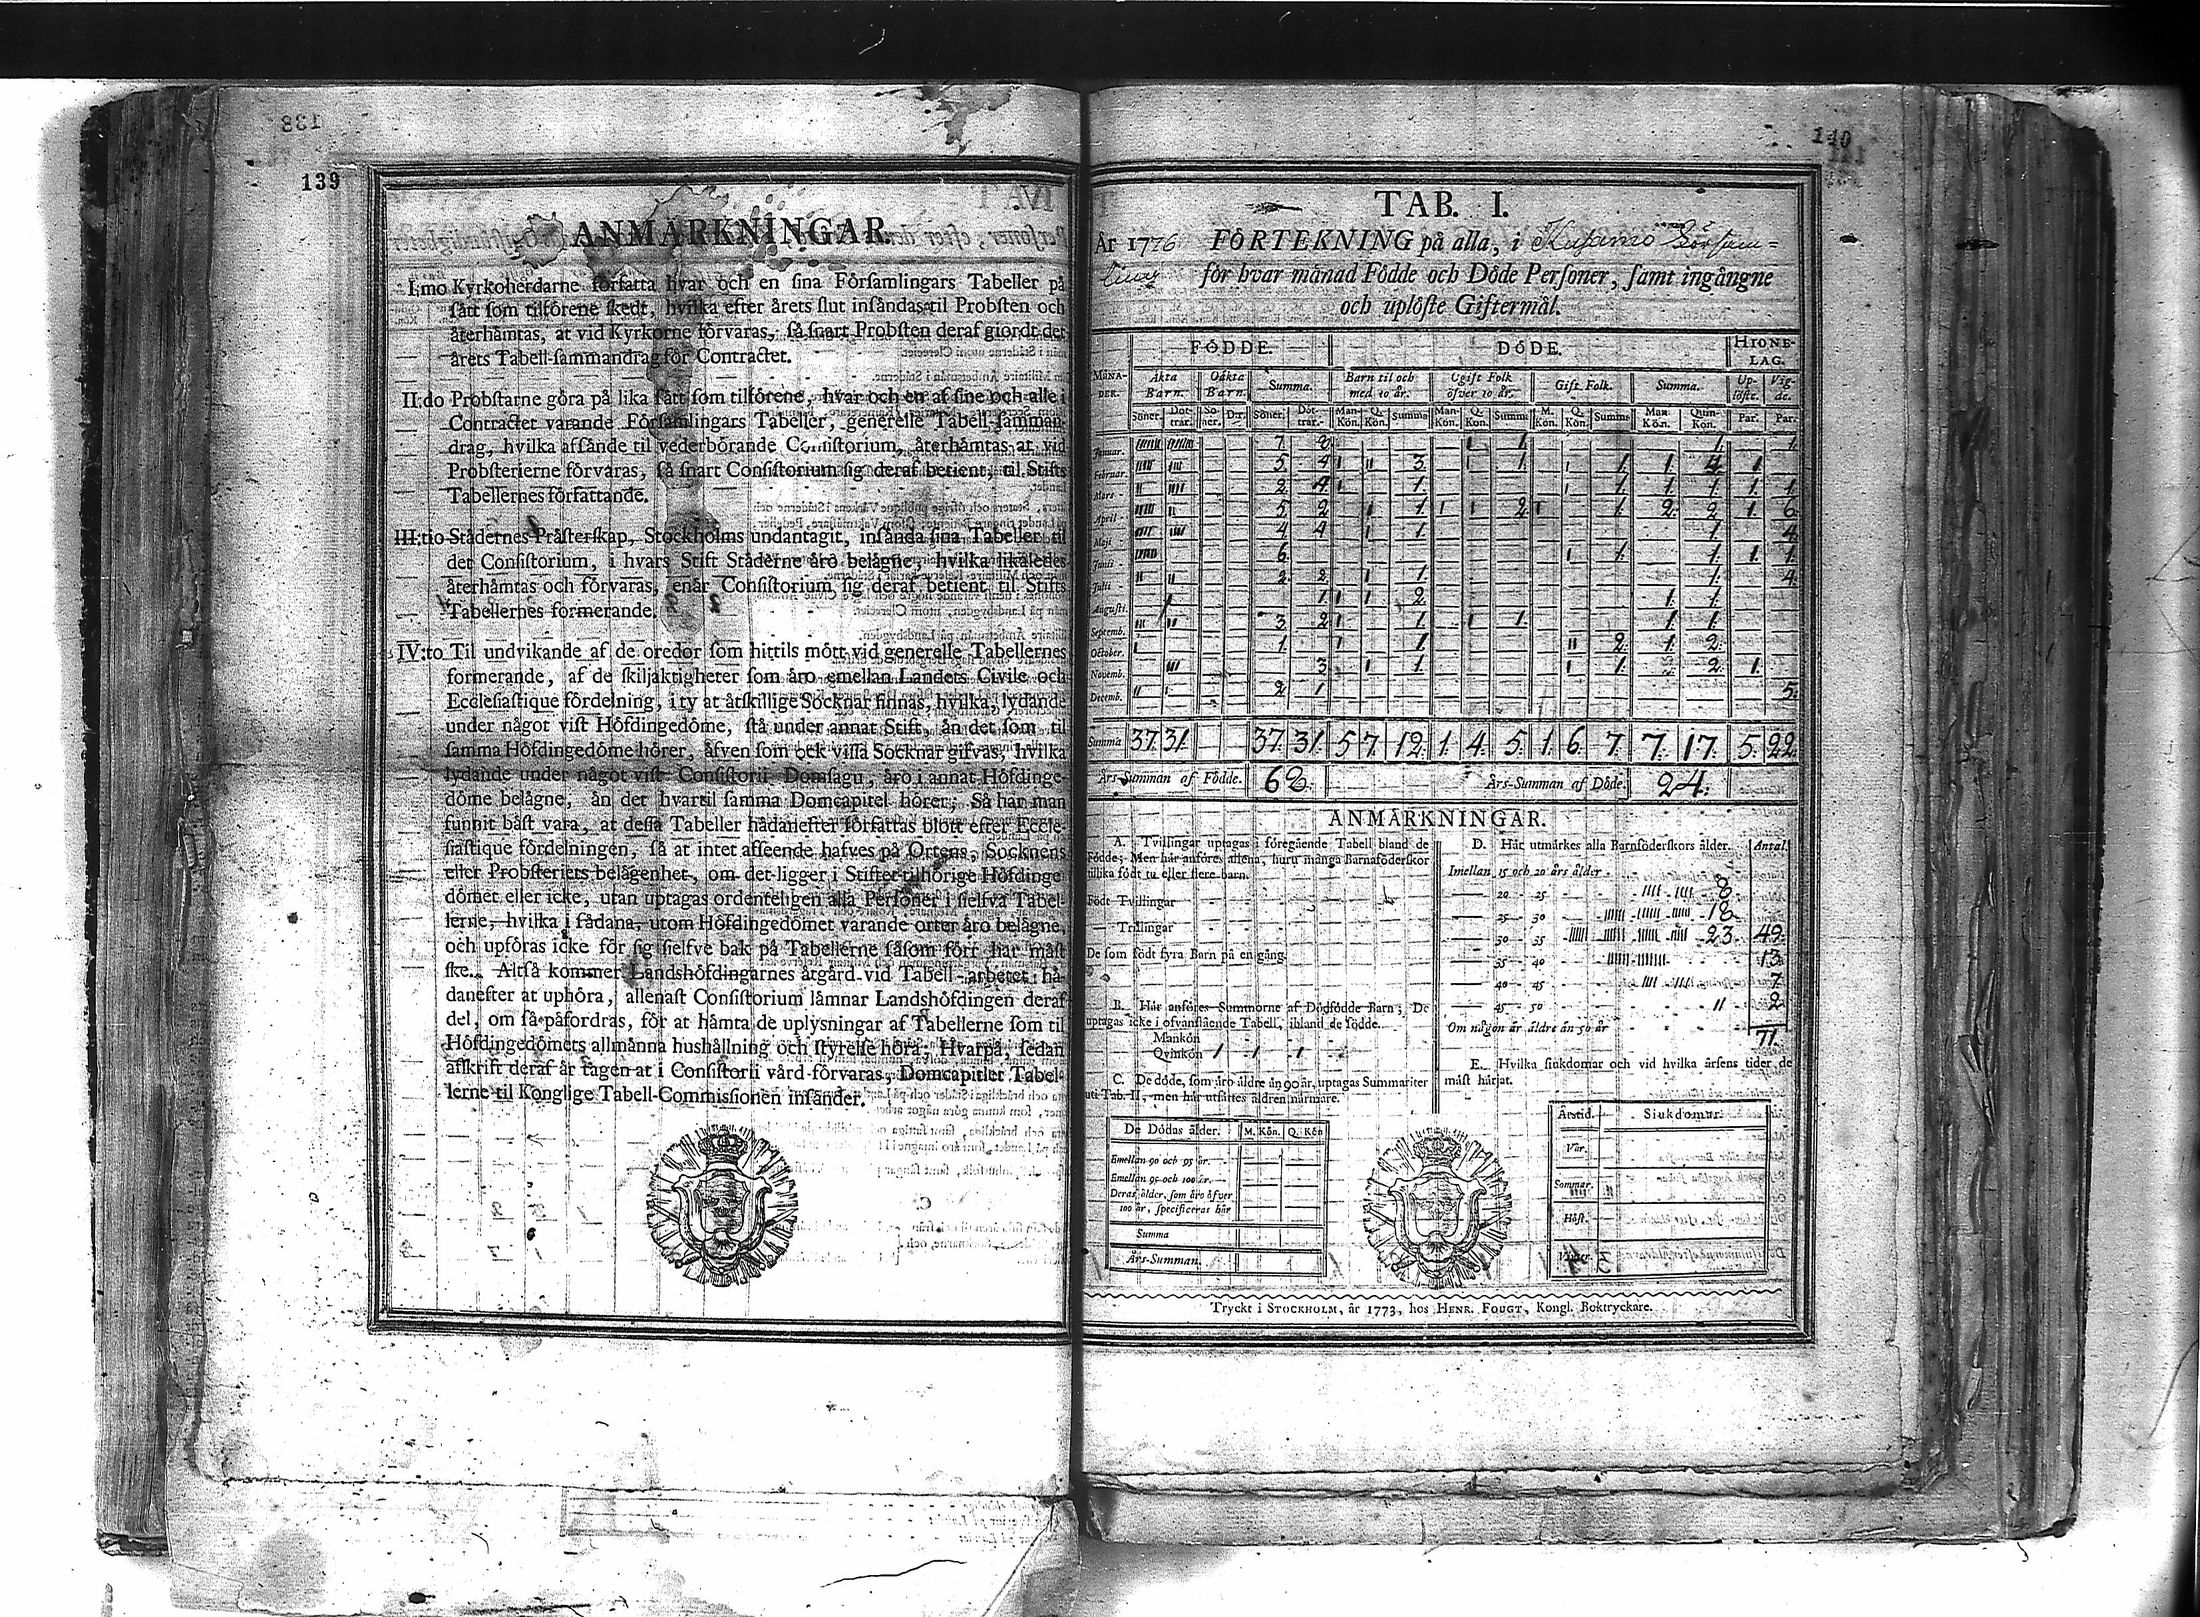 139
ANMÄRKNINGAR.
I:mo Kyrkoherdarne författa hvar och en sina Församlingars Tabeller på
sätt som tilförene skedt, hvilka efter årets slut insändas til Probsten och
återhämtas, at vid Kyrkorne förvaras, så snart Probsten deraf giordt det
årets Tabell-sammandrag för Contractet.
II:do Probstarne göra på lika sätt som tilförene, hvar och en af sine och alle i
Contractet varande Församlingars Tabeller, generelle Tabell-samman-
drag, hvilka afsände til vederbörande Consistorium, återhämtas at vid
Probsterierne förvaras, så snart Consistorium sig deraf betient, til Stifts
Tabellernes författande.
III:tio Städernes Prästerskap, Stockholms undantagit, insända sina Tabeller til
det Consistorium, i hvars Stift Städerne äro belägne, hvilka likaledes
återhämtas och förvaras, enär Consistorium sig deraf betient til Stifts
Tabellernes formerande.
IV:to Til undvikande af de oredor som hittils mött vid generelle Tabellernes
formerande, af de skiljaktigheter som äro emellan Landets Civile och
Ecclesiastique fördelning, i ty at åtskillige Socknar finnas, hvilka, lydande
under något vist Höfdingedöme, stå under annat Stift, än det som til
samma Höfdingedöme hörer, äfven som ock vissa Socknar gifvas, hvilka
lydande under något vist Consistorii Domsagu, äro i annat Höfdinge-
döme belägne, än det hvartil samma Domcapitel hörer; Så har man
funnit bäst vara, at dessa Tabeller hädanefter författas blott efter Eccle-
siastique fördelningen, så at intet afseende hafves på Ortens, Socknens
eller Probsteriets belägenhet, om det ligger i Stiftet tilhörige Höfdinge
dömet eller icke, utan uptagas ordenteligen alla Personer i sielfva Tabel-
lerne, hvilka i sådana, utom Höfdingedömet varande orter äro belägne,
och upföras icke för sig sielfve bak på Tabellerne såsom förr har måst
ske. Altså kommer Landshöfdingarnes åtgärd vid Tabell-arbetet hä-
danefter at uphöra, allenast Consistorium lämnar Landshöfdingen deraf
del, om så påfordras, för at hämta de uplysningar af Tabellerne som til
Höfdingedömets allmänna hushållning och styrelse höra. Hvarpå, sedan
afskrift deraf är tagen at i Consistorii värd förvaras, Domcapitlet Tabel-
lerne til Konglige Tabell-Commissionen insänder.
140
TAB. I.
År 1776 FÖRTEKNING på alla, i Kusamo Församling
för hvar månad Födde och Döde Personer, samt ingångne
och uplöste Giftermål.
FÖDDE. DÖDE. HIONE-LAG.
MÅNA-DER. Äkta Barn. Oäkta Barn. Summa. Barn til och med 10 år. Ogift Folk öfver 10 år. Gift Folk. Summa. Up-löste. Vig-de.
Söner. Döt-trar. So-ner. D:r. Söner. Döt-trar. Man-Kön. Q. Kön. Summa Man-Kön. Q. Kön. Summa M. Kön. Q. Kön. Summa Man Kön. Quin-Kön. Par. Par.
Januar. 7 8 1 1 1 1
Februar. 5 4 3 1 1 1 4 1
Mars 2 4 1 1 1 1 1 1
April 5 2 1 2 1 2 2 1 6
Maji 4 4 1 1 4
Junii 6 1 1 1 1
Julii 2 2 1 1 4
Augusti. 1 2 1 1
Septemb. 3 2 1 1 1 1
October. 1 1 2 1 2
Novemb. 3 1 1 2 1
Decemb. 2 1 5
Summa 37 31 37 31 5 7 12 1 4 5 1 6 7 7 17 5 22
Års-Summan af Födde. 68 Års-Summan af Döde. 24
ANMÄRKNINGAR.
A. Tvillingar uptagas i föregående Tabell bland de
Födde; Men här anföres allena, huru många Barnaföderskor
tillika födt tu eller flere barn.
Födt Tvillingar
Trillingar
De som födt fyra Barn på en gång
B. Här anföres Summorne af Dödfödde Barn; De
uptagas icke i ofvanstående Tabell, ibland de födde.
Mankön
Qvinkön 1 1 1
C. De döde, som äro äldre än 90 år, uptagas Summariter
uti Tab. II, men här utsättes åldren närmare.
De Dödas ålder. M. Kön. Q. Kön
Emellan 90 och 95 år.
Emellan 95 och 100 år.
Deras ålder, som äro öfver
100 år, specificeras här
Summa
Års-Summan.
D. Här utmärkes alla Barnföderskors ålder. Antal.
Imellan 15 och 20 års ålder
20 - 25 8
25 - 30 18
30 - 35 23 49
35 - 40 13
40 - 45 7
45 - 50 2
Om någon är äldre än 50 år
71.
E. Hvilka siukdomar och vid hvilka årsens tider de
mäst härjat.
Årstid. Siukdomar.
Vår.
Sommar.
Höst.
Vinter.
Tryckt i STOCKHOLM, år 1773, hos HENR. FOUGT, Kongl. Boktryckare.